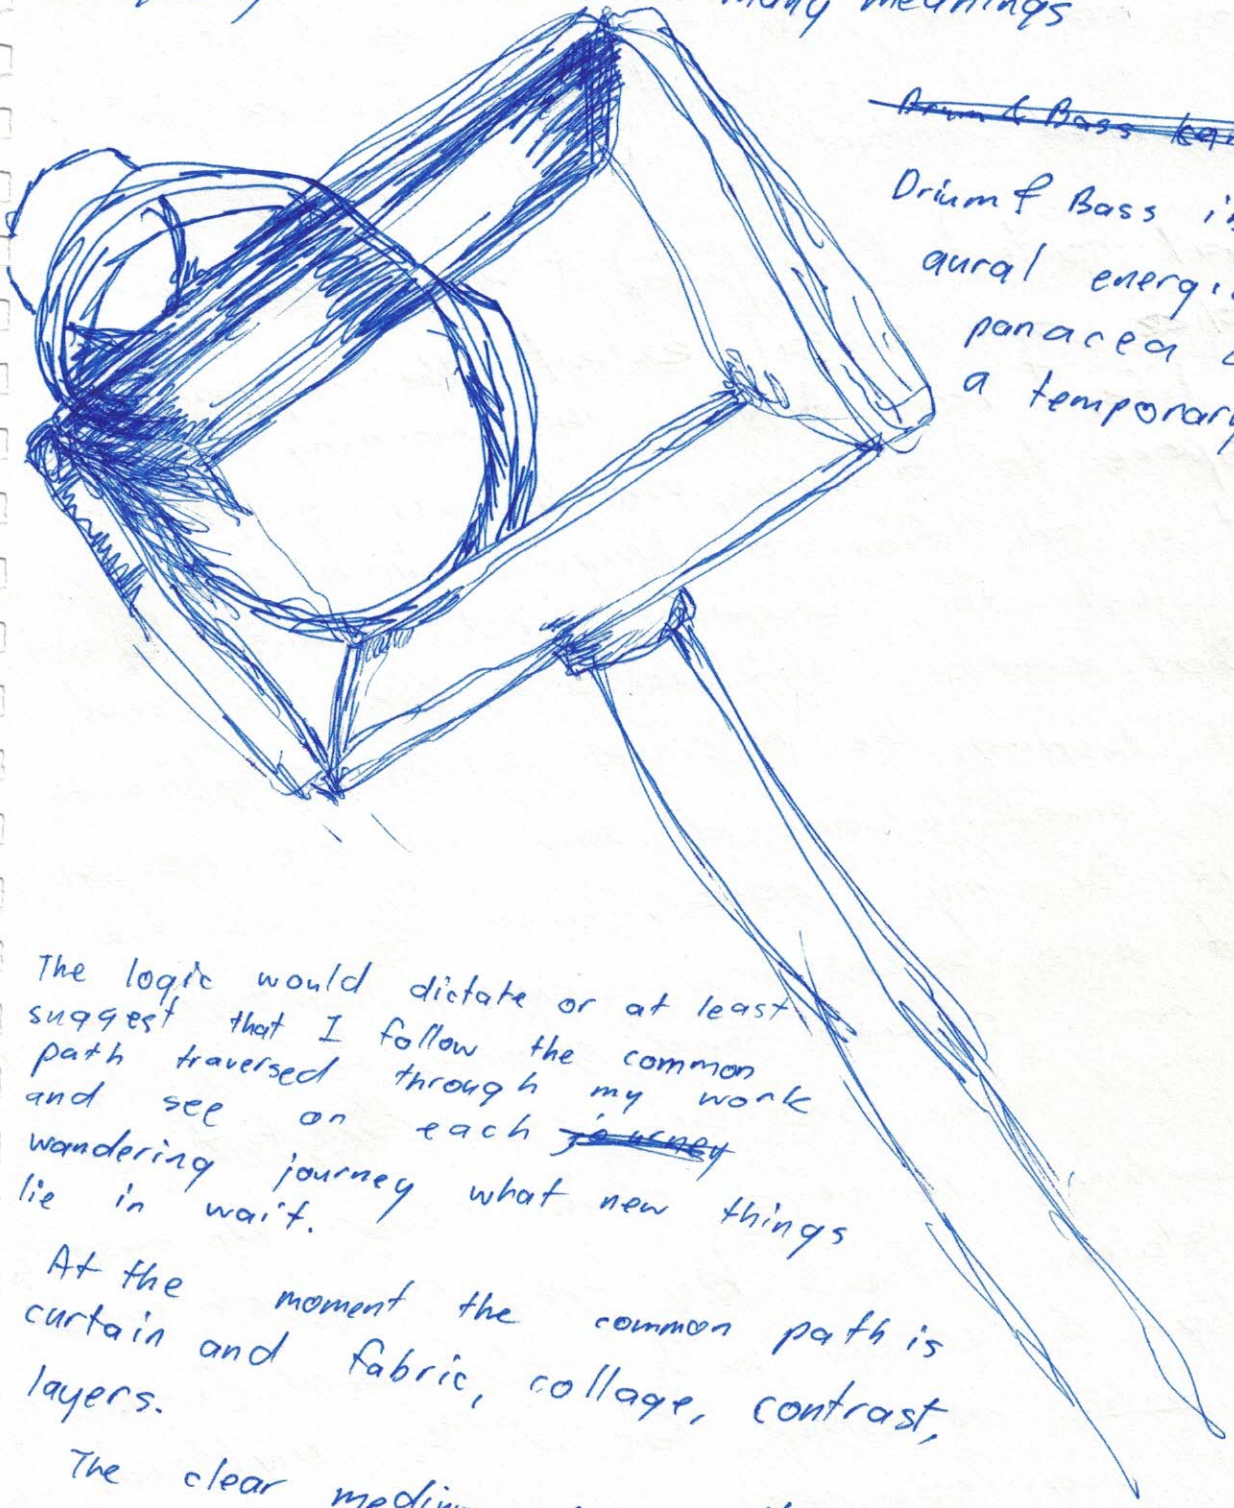 many meanings
Drum & Bass
Drium & Bass
aural
panacea
a temporary
The logic would dictate or at least
suggest that I follow the common
path traversed through my work
and see on each journey
wandering journey what new things
lie in wait.
At the moment the common path is
curtain and fabric, collage, contrast,
layers.
The clear